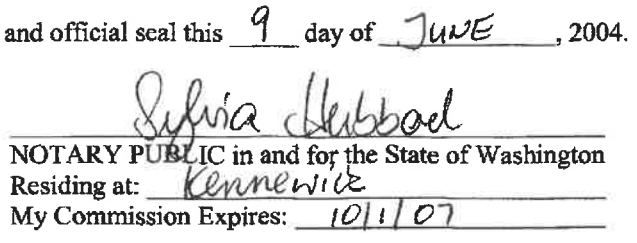 and official seal this 9 day of JUNE, 2004.
Sylvia Hubbard
NOTARY PUBLIC in and for the State of Washington
Residing at: Kennewick
My Commission Expires: 10/1/07